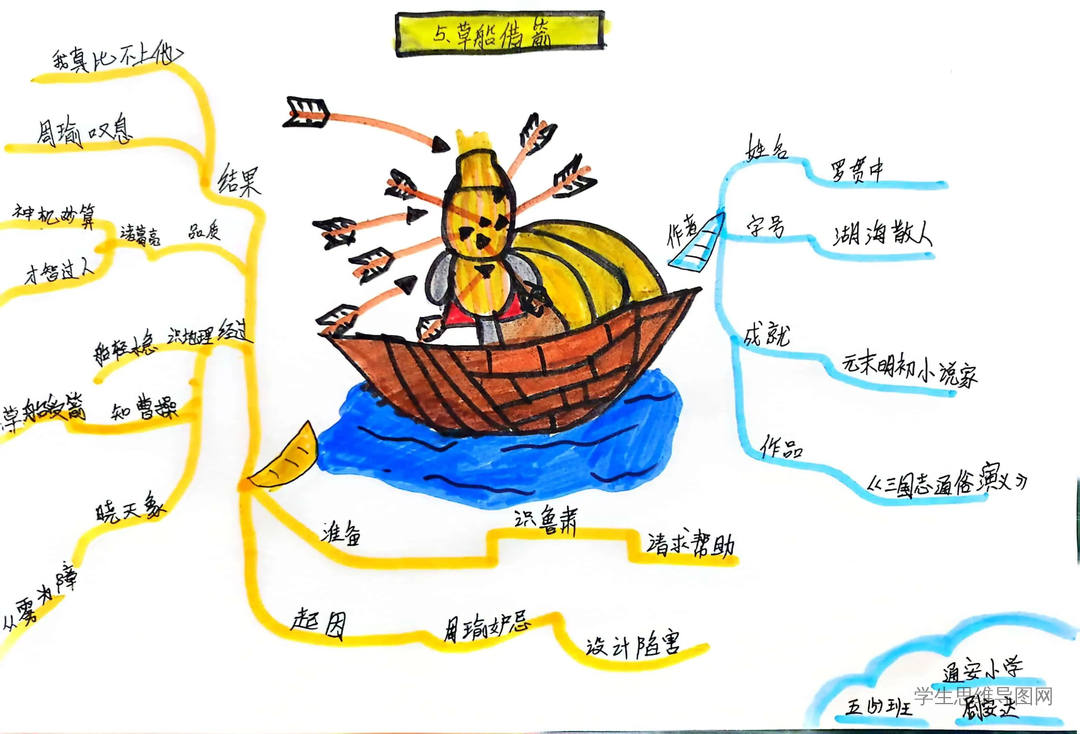 5、草船借箭
我真比不上他
周瑜叹息
结果
神机妙算
才智过人
诸葛亮
品质
船轻稳
识地理
经过
草船受箭
知曹操
晓天象
雾为障
准备
识鲁肃
请求帮助
起因
周瑜妒忌
设计陷害
作者
姓名
罗贯中
字号
湖海散人
成就
元末明初小说家
作品
《三国志通俗演义》
通安小学
五(4)班
学生思维导图网